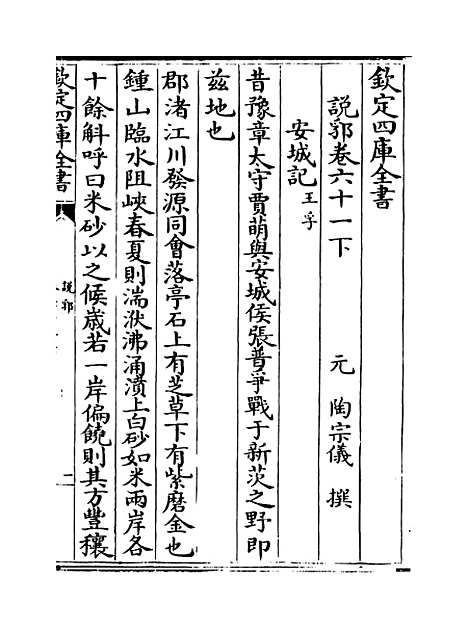 欽定四庫全書
說郛卷六十一下　元　陶宗儀　撰
安城記王孚
昔豫章太守賈萌與安城侯張普爭戰于新茨之野即
茲地也
郡渚江川發源同會落亭石上有芝草下有紫磨金也
鍾山臨水阻峽春夏則湍洑沸涌濆上白砂如米兩岸各
十餘斛呼曰米砂以之候歲若一岸偏饒則其方豐穰
欽定四庫全書
說郛